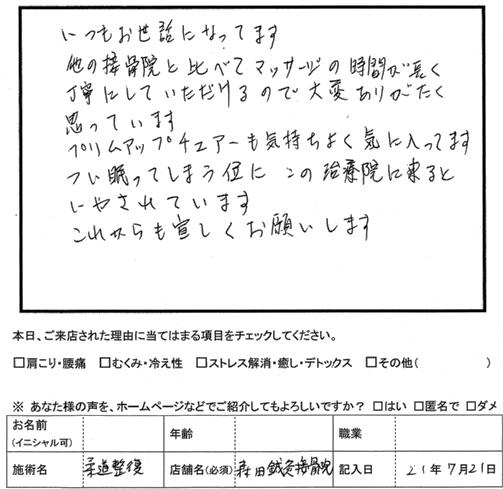 いつもお世話になってます
他の接骨院と比べてマッサージの時間が長く
丁寧にしていただけるので大変ありがたく
思っています
プリムアップチェアーも気持ちよく気に入ってます
つい眠ってしまう位に この治療院に来ると
いやされています
これからも宜しくお願いします
本日、ご来店された理由に当てはまる項目をチェックしてください。
□肩こり・腰痛 □むくみ・冷え性 □ストレス解消・癒し・デトックス □その他( )
※ あなた様の声を、ホームページなどでご紹介してもよろしいですか？ □はい □匿名で □ダメ
お名前 年齢 職業
(イニシャル可)
施術名 柔道整復 店舗名(必須) 森田鍼灸接骨院 記入日 21年7月21日